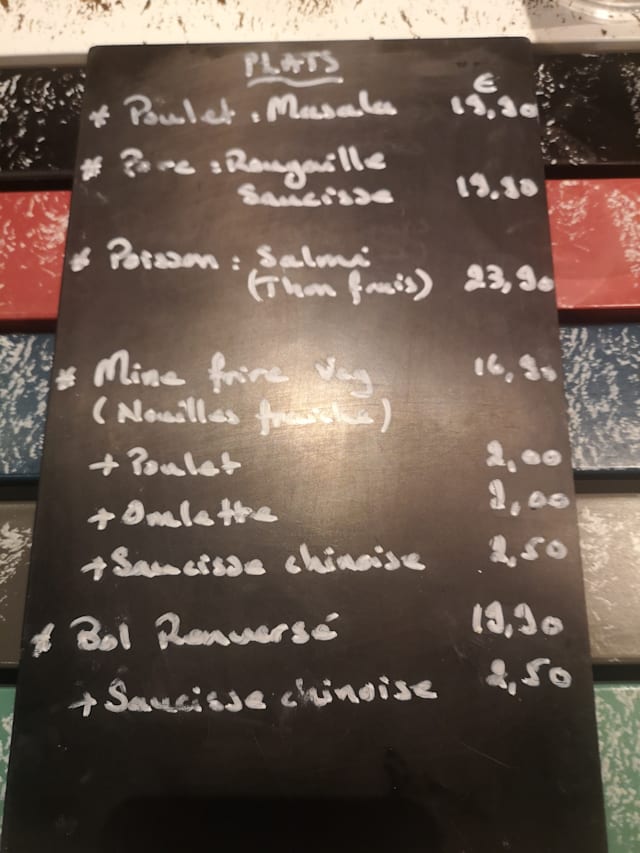 PLATS
€
* Poulet : Masala 19,90
* Porc : Rougaille
Saucisse 19,90
* Poisson : Salmi
(Thon frais) 23,90
* Mine frire Veg 16,90
(Nouilles fraiche)
+ Poulet 2,00
+ Omlette 2,00
+ Saucisse chinoise 2,50
* Bol Renversé 19,90
+ Saucisse chinoise 2,50